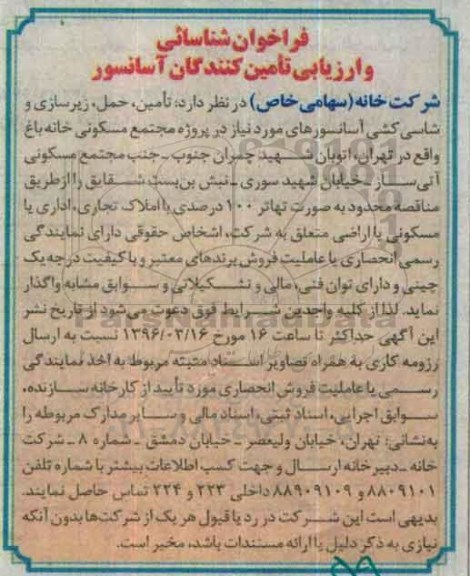 فراخوان شناسائی
و ارزیابی تأمین کنندگان آسانسور
شرکت خانه (سهامی خاص) در نظر دارد: تأمین، حمل، زیرسازی و
شاسی کشی آسانسورهای مورد نیاز در پروژه مجتمع مسکونی خانه باغ
واقع در تهران، اتوبان شهید چمران جنوب ـ جنب مجتمع مسکونی
آتی ساز ـ خیابان شهید سوری ـ نبش بن بست شقایق را از طریق
مناقصه محدود به صورت تهاتر ۱۰۰ درصدی با املاک تجاری، اداری یا
مسکونی یا اراضی متعلق به شرکت، اشخاص حقوقی دارای نمایندگی
رسمی انحصاری یا عاملیت فروش برندهای معتبر و با کیفیت درجه یک
چینی و دارای توان فنی، مالی و تشکیلاتی و سوابق مشابه واگذار
نماید. لذا از کلیه واجدین شرایط فوق دعوت می شود از تاریخ نشر
این آگهی حداکثر تا ساعت ۱۶ مورخ ۱۳۹۶/۰۳/۱۶ نسبت به ارسال
رزومه کاری به همراه تصاویر اسناد مثبته مربوط به اخذ نمایندگی
رسمی یا عاملیت فروش انحصاری مورد تأیید از کارخانه سازنده،
سوابق اجرایی، اسناد ثبتی، اسناد مالی و سایر مدارک مربوطه را
به نشانی: تهران، خیابان ولیعصر ـ خیابان دمشق ـ شماره ۸ ـ شرکت
خانه ـ دبیرخانه ارسال و جهت کسب اطلاعات بیشتر با شماره تلفن
۸۸۰۹۱۰۱ و ۸۸۹۰۹۱۰۹ داخلی ۲۲۳ و ۲۲۴ تماس حاصل نمایند.
بدیهی است این شرکت در رد یا قبول هر یک از شرکت ها بدون آنکه
نیازی به ذکر دلیل یا ارائه مستندات باشد، مخیر است.